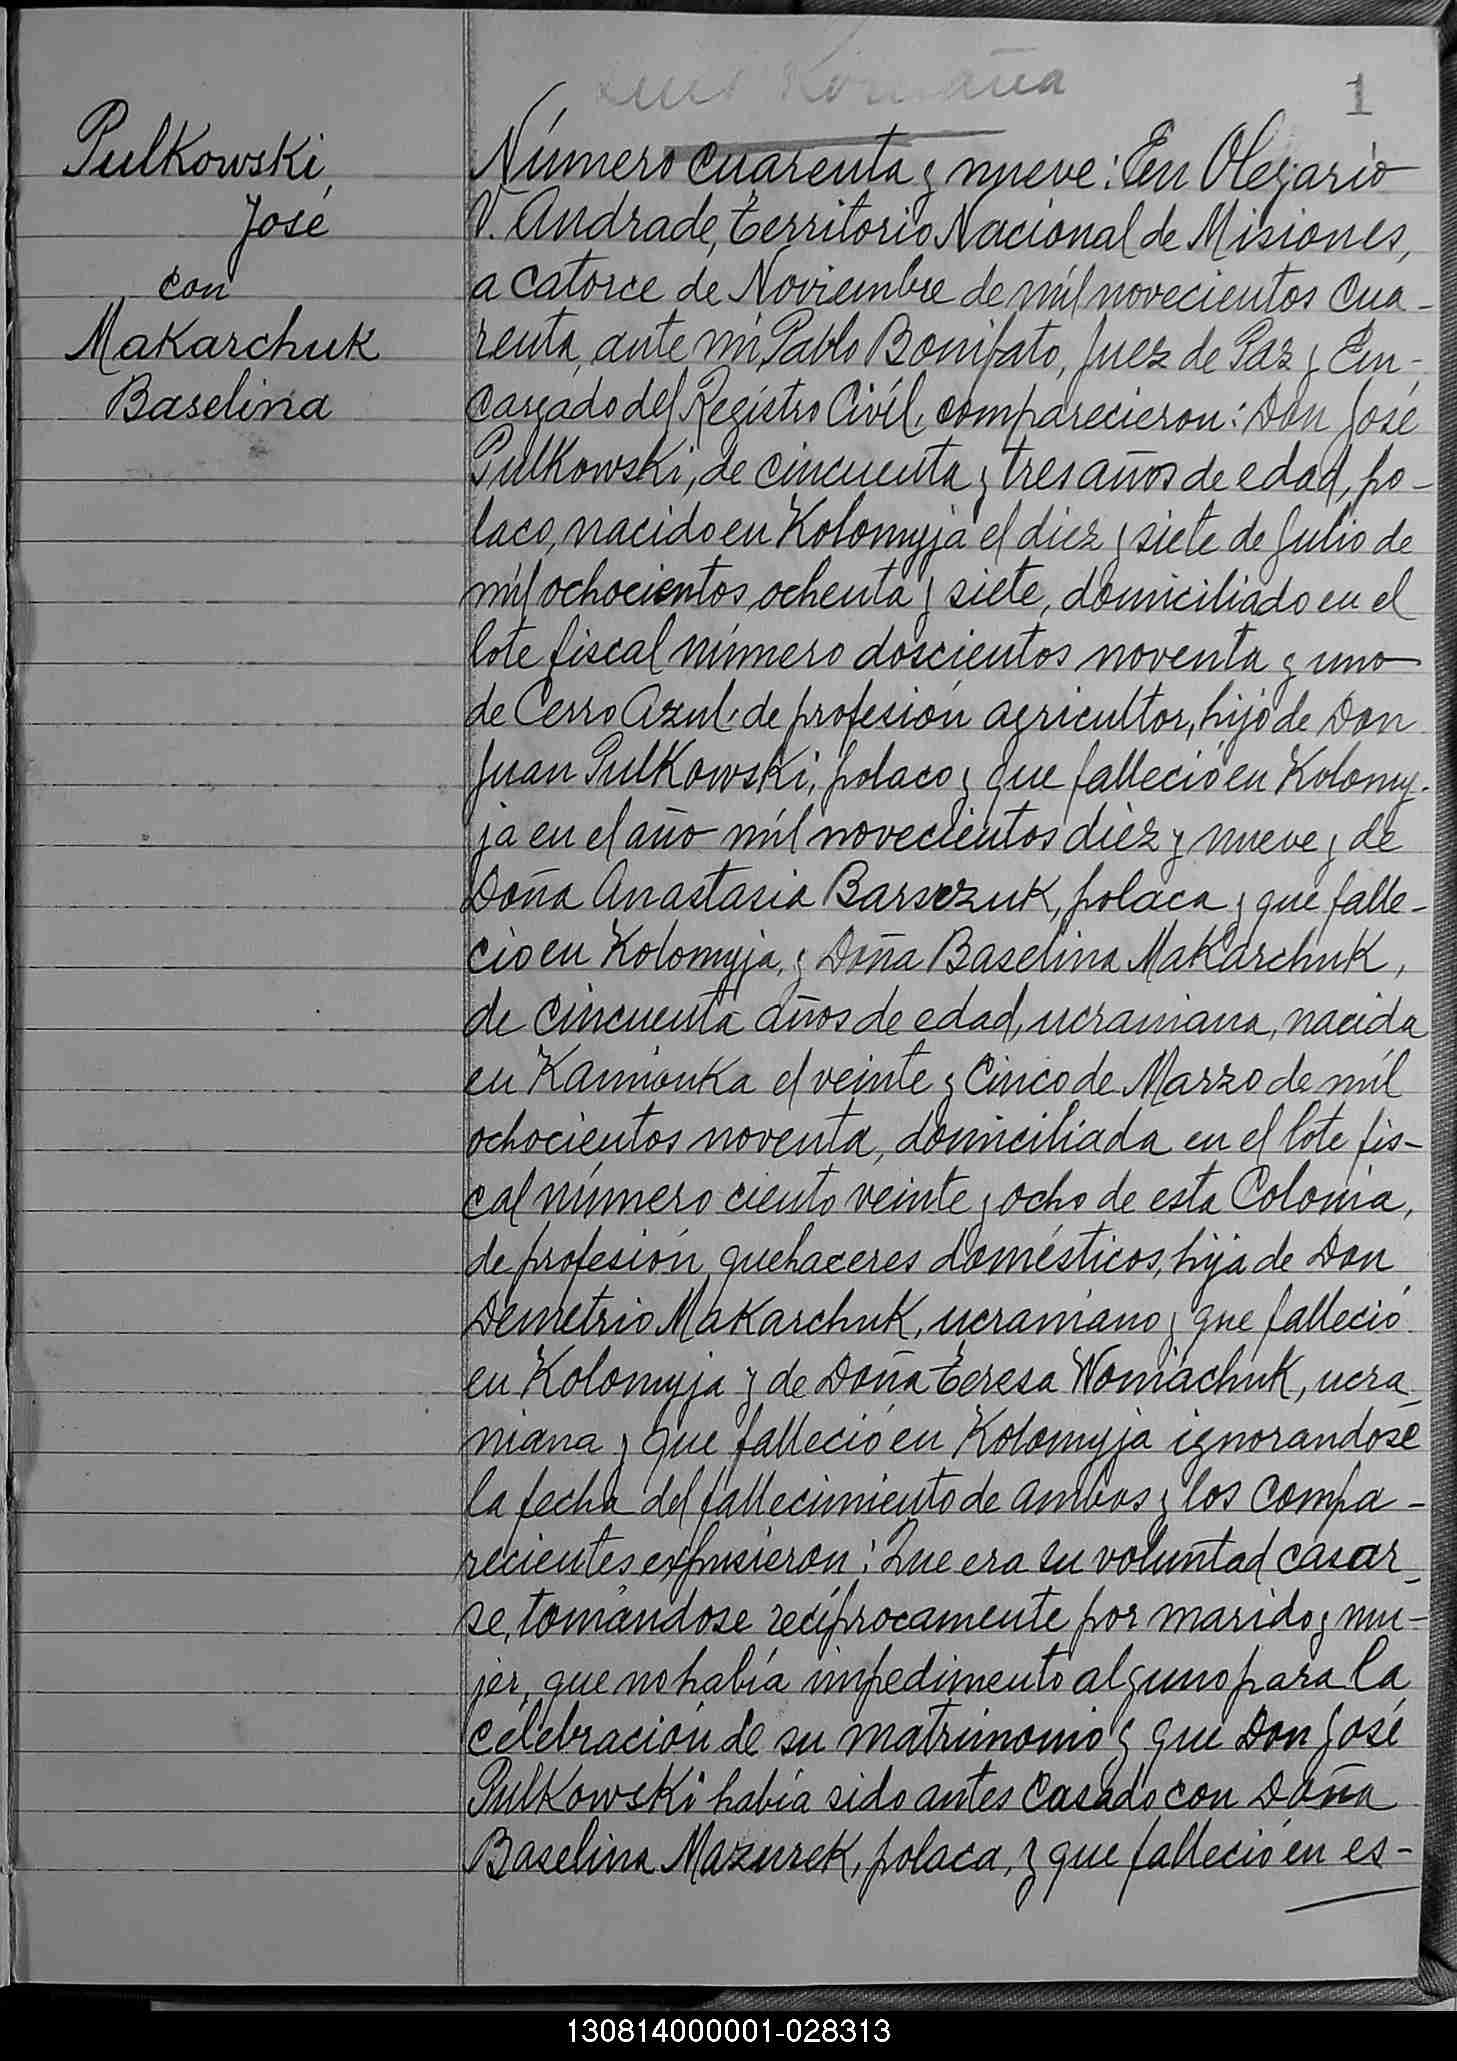 1
Pulkowski,
José
con
Makarchuk
Baselina
Número cuarenta y nueve: En Olegario
V. Andrade, Territorio Nacional de Misiones,
a catorce de Noviembre de mil novecientos cua-
renta, ante mi, Pablo Bonifato, Juez de Paz y En-
cargado del Registro Civil, comparecieron: Don José
Pulkowski, de cincuenta y tres años de edad, po-
laco, nacido en Kolomyja el diez y siete de Julio de
mil ochocientos ochenta y siete, domiciliado en el
lote fiscal número doscientos noventa y uno
de Cerro Azul, de profesión agricultor, hijo de Don
Juan Pulkowski, polaco y que falleció en Kolomy-
ja en el año mil novecientos diez y nueve y de
Doña Anastasia, polaca y que falle-
ció en Kolomyja, y Doña Baselina Makarchuk,
de cincuenta años de edad, ucraniana, nacida
en Kamionka el veinte y cinco de Marzo de mil
ochocientos noventa, domiciliada en el lote fis-
cal número ciento veinte y ocho de esta Colonia,
de profesión quehaceres domésticos, hija de Don
Demetrio Makarchuk, ucraniano y que falleció
en Kolomyja y de Doña Teresa Womiachuk, ucra
niana y que falleció en Kolomyja ignorandose
la fecha del fallecimiento de ambos y los compa-
recientes expusieron: Que era su voluntad casar-
se, tomándose recíprocamente por marido y mu-
jer, que no había impedimento alguno para la
celebración de su matrimonio y que Don José
Pulkowski había sido antes casado con Doña
Baselina Mazurek, polaca, y que falleció en es-
130814000001-028313